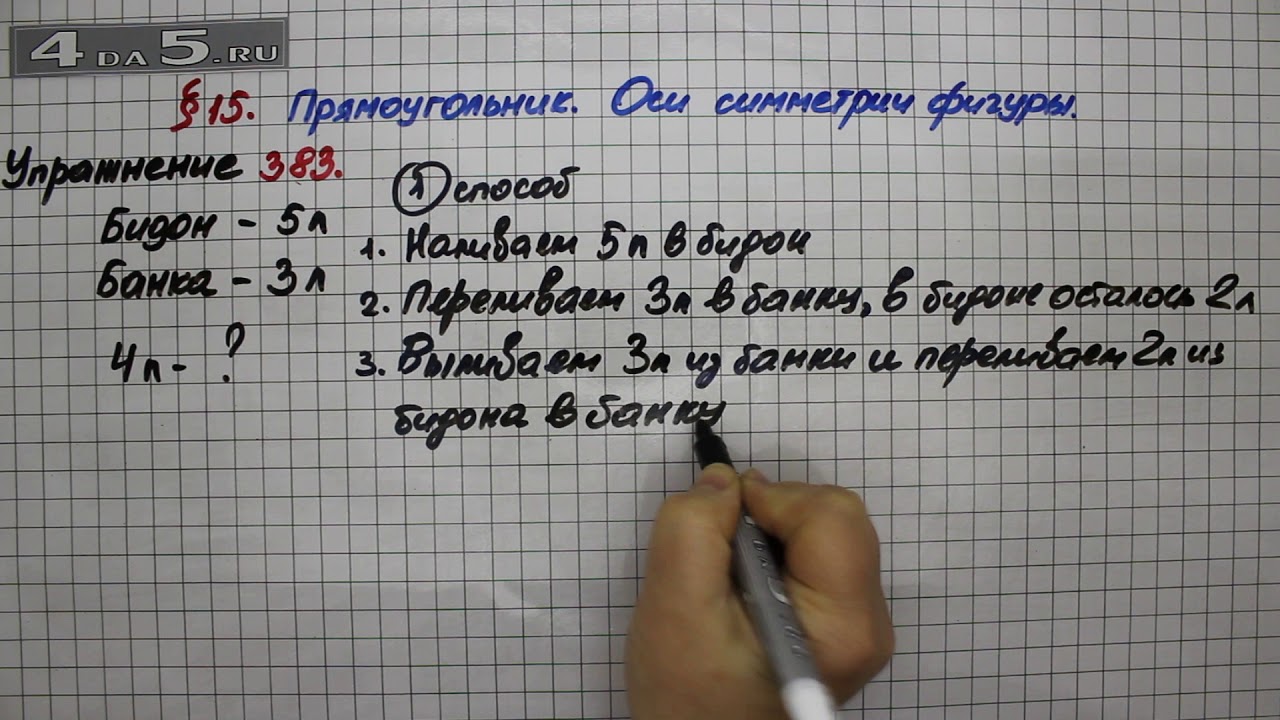 4DA5.RU
§15. Прямоугольник. Оси симметрии фигуры.
Упражнение 383.
Бидон - 5л
Банка - 3л
4л - ?
1 способ
1. Наливаем 5л в бидон
2. Переливаем 3л в банку, в бидоне осталось 2л
3. Выливаем 3л из банки и переливаем 2л из
бидона в банку